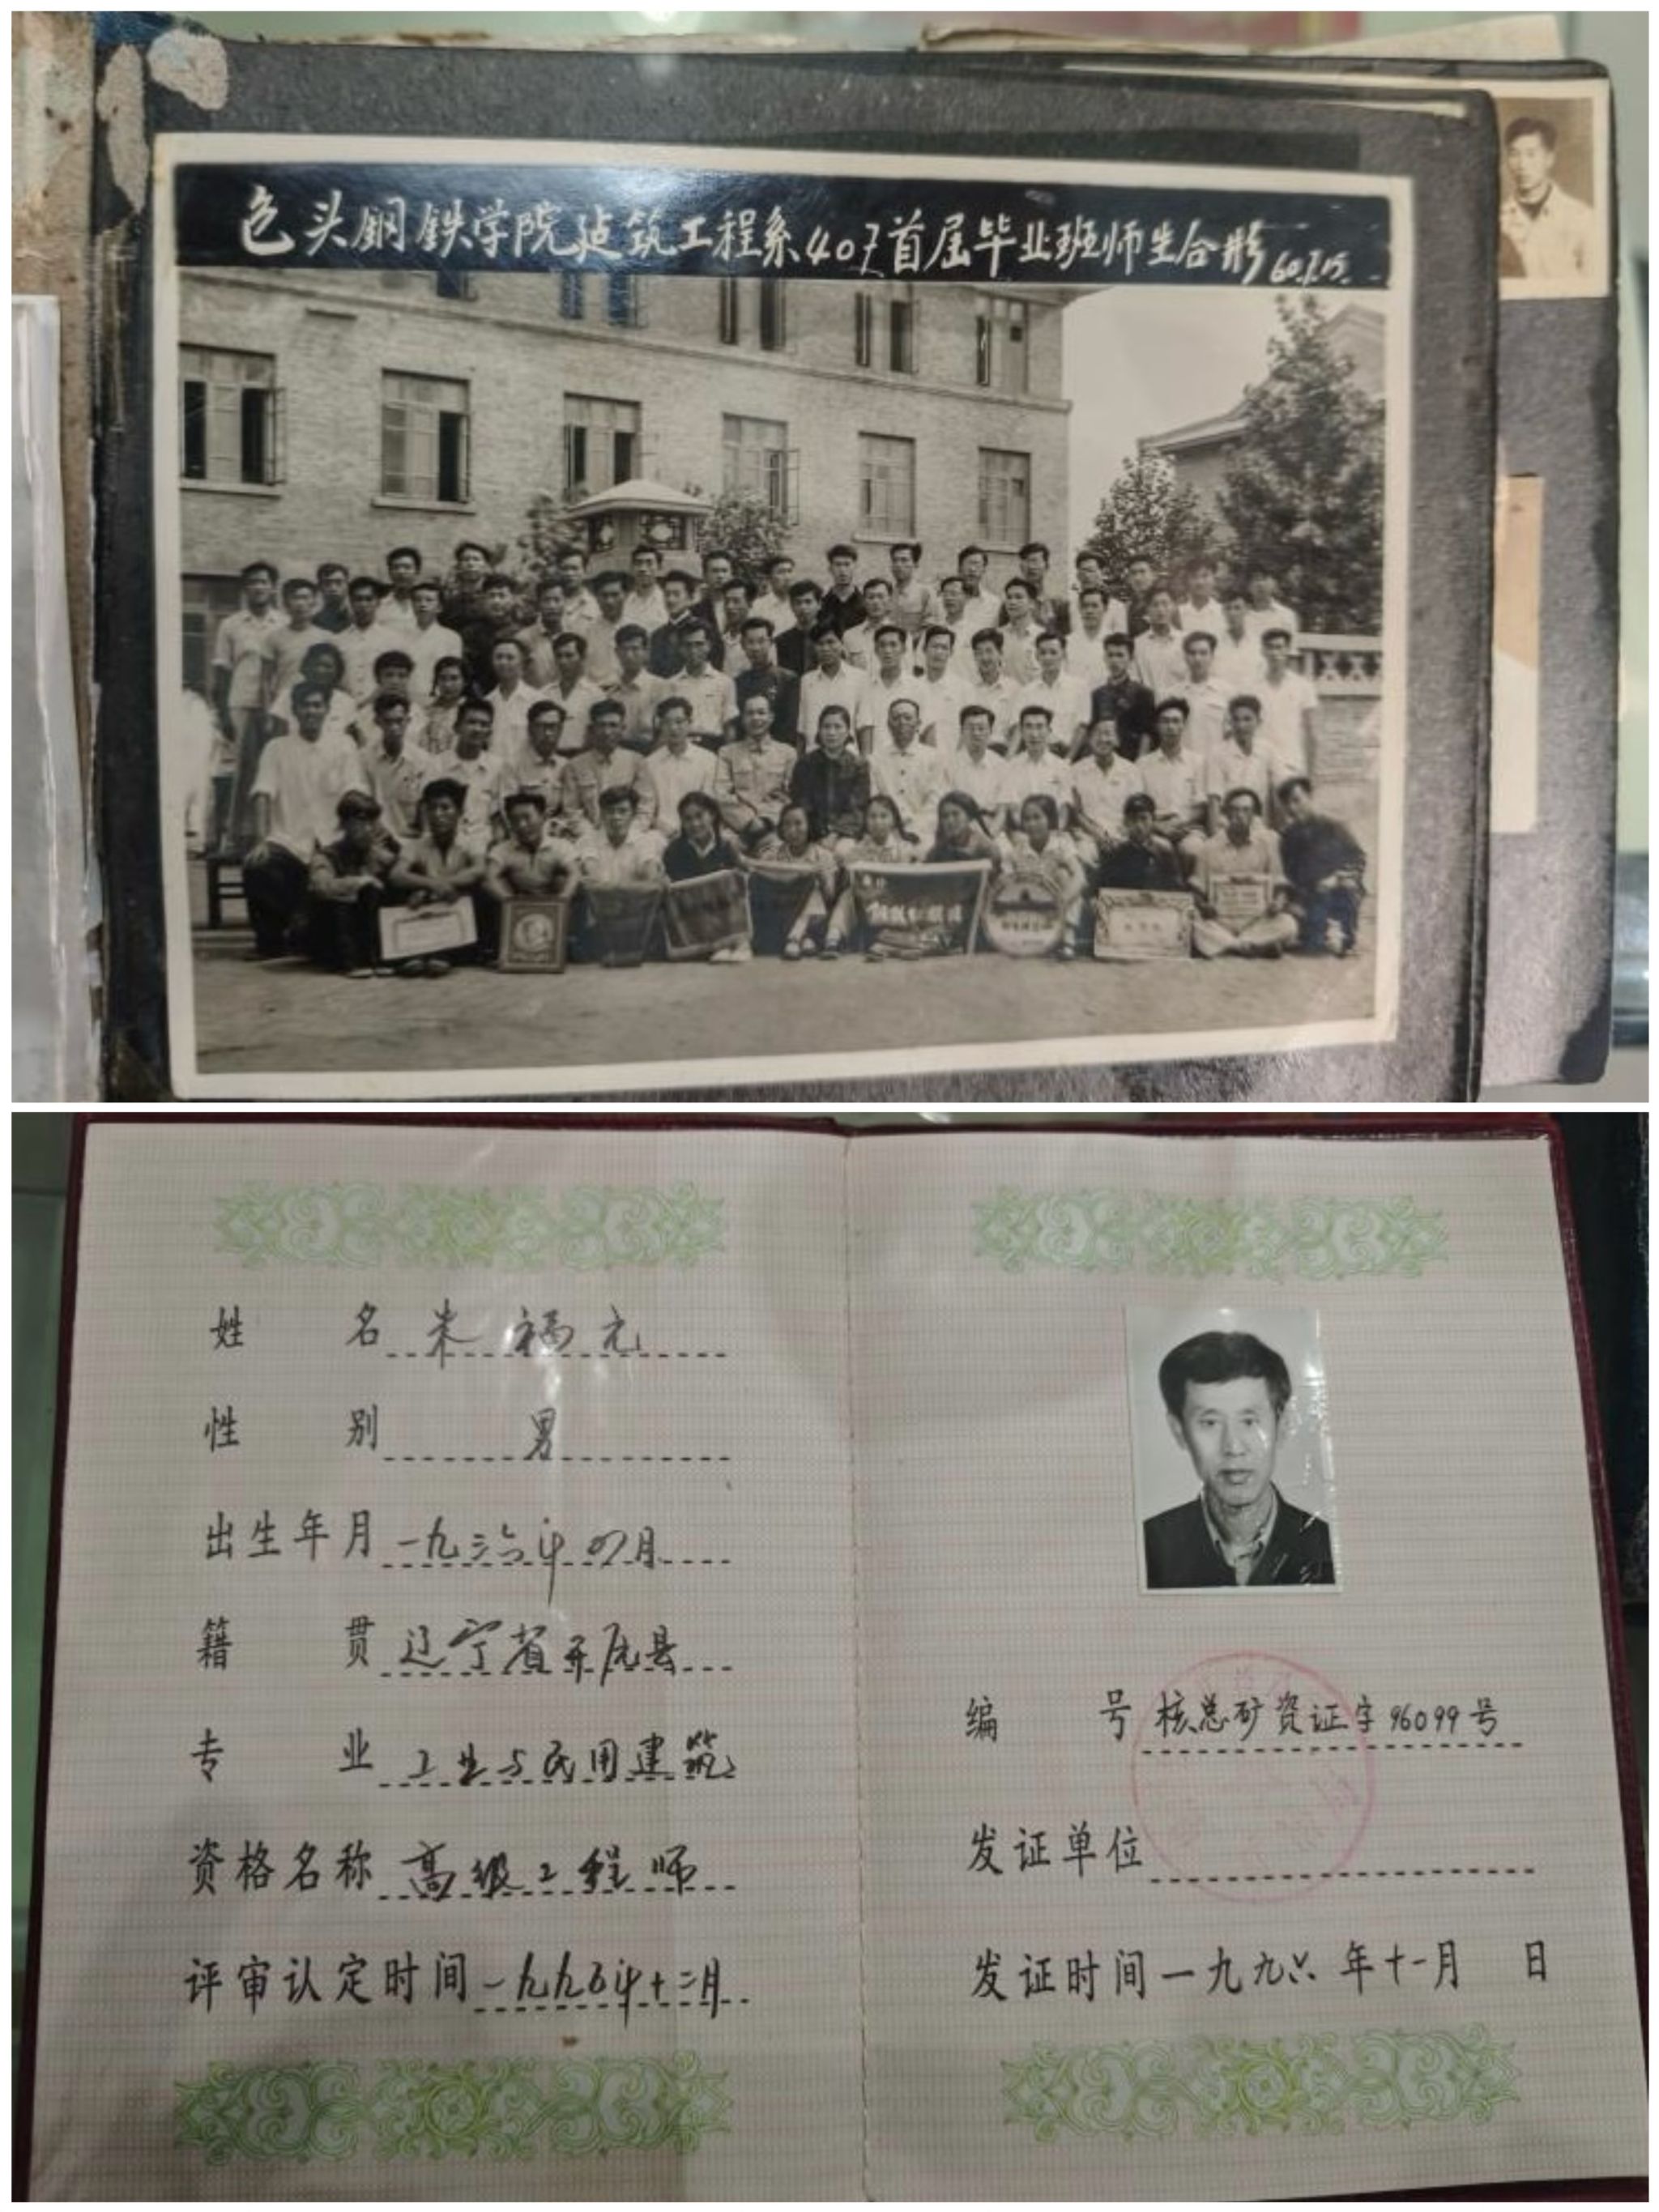 包头钢铁学院建筑工程系407首届毕业班师生合影 60.7.15.
姓名 朱福元
性别 男
出生年月 一九三六年四月
籍贯 辽宁省开原县
专业 工业与民用建筑
资格名称 高级工程师
评审认定时间 一九九五年十二月
编号 核总矿资证字96099号
发证单位
发证时间 一九九六年十一月 日